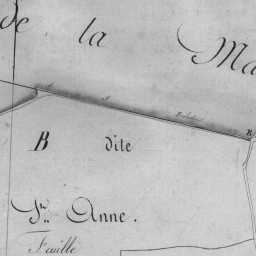 de la Ma
B dite
Ste Anne.
Feuille